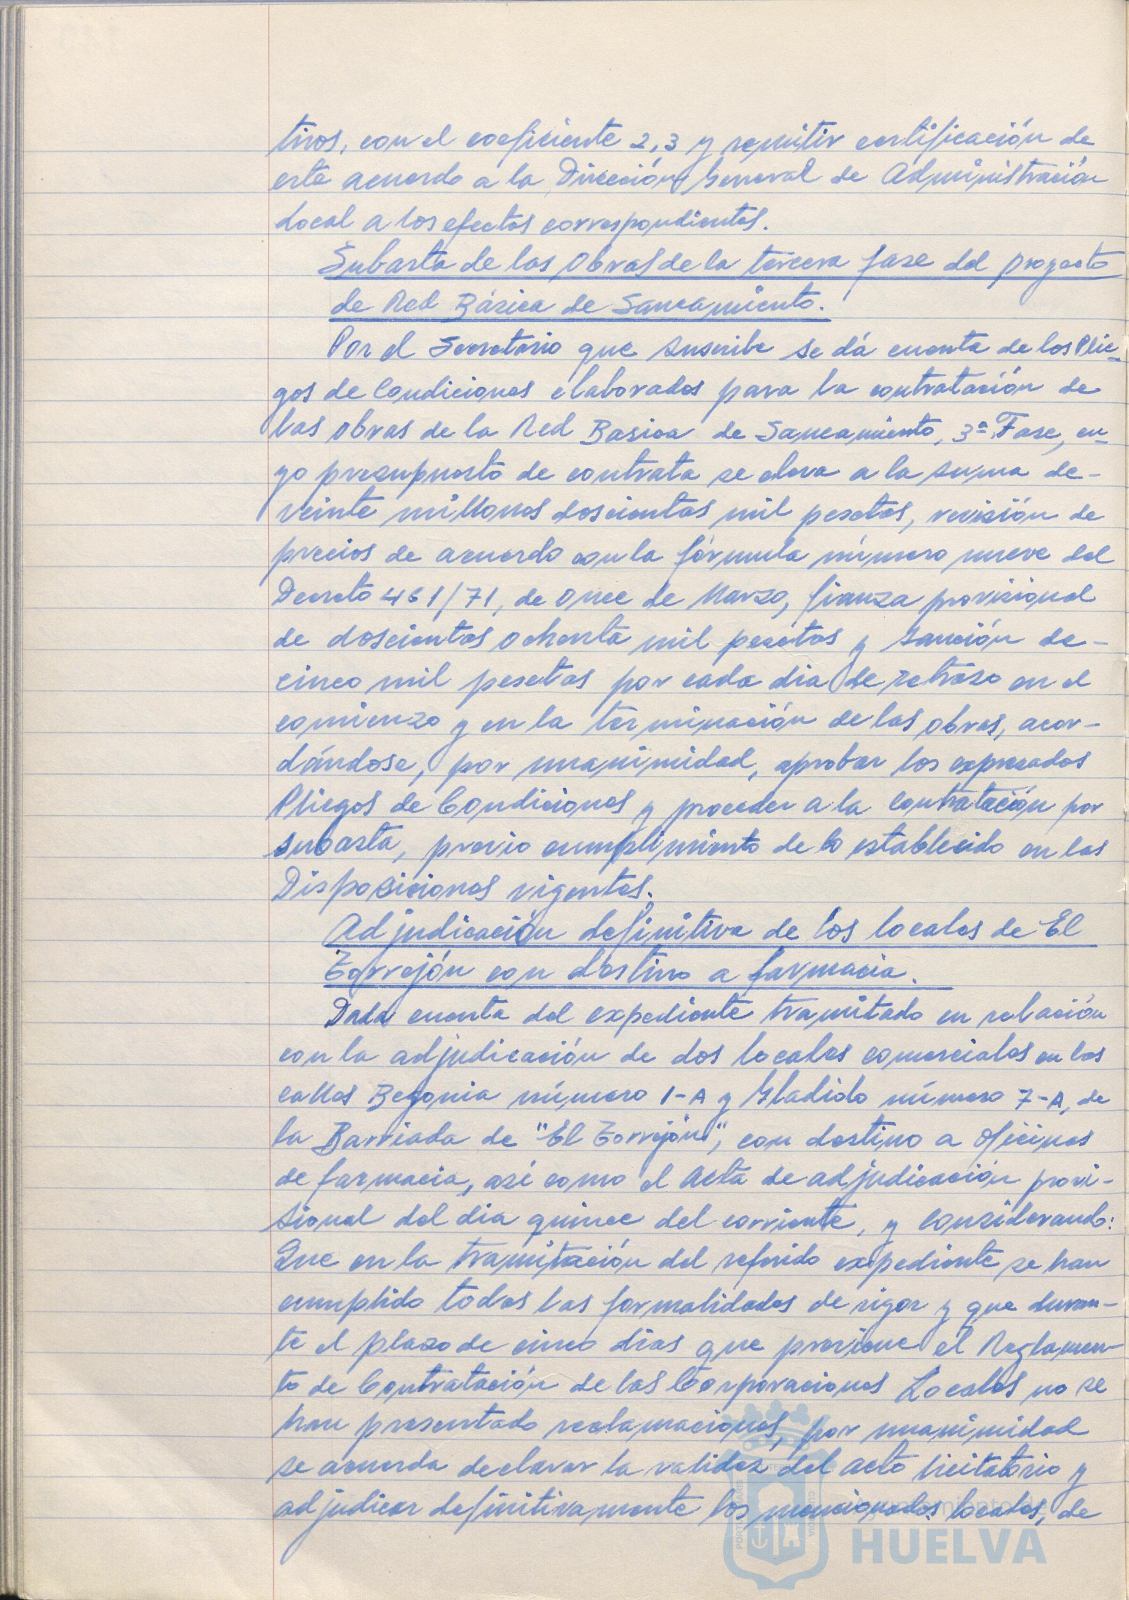 tivos, con el coeficiente 2,3 y remitir certificación de
este acuerdo a la Dirección General de Administración
Local a los efectos correspondientes.
Subasta de las Obras de la tercera fase del proyecto
de Red Básica de Saneamiento.
Por el Secretario que suscribe se dá cuenta de los Plie-
gos de Condiciones elaborados para la contratación de
las obras de la Red Basica de Saneamiento, 3ª Fase, cu-
yo presupuesto de contrata se eleva a la suma de-
veinte millones doscientas mil pesetas, revisión de
precios de acuerdo con la fórmula número nueve del
Decreto 461/71, de once de Marzo, fianza provisional
de doscientas ochenta mil pesetas y sanción de-
cinco mil pesetas por cada dia de retraso en el
comienzo y en la terminación de las obras, acor-
dándose, por unanimidad, aprobar los expresados
Pliegos de Condiciones y proceder a la contratación por
subasta, previo cumplimiento de lo establecido en las
Disposiciones vigentes.
Adjudicación definitiva de los locales de El
Torrejón con destino a farmacia.
Dada cuenta del expediente tramitado en relación
con la adjudicación de dos locales comerciales en las
calles Begonia número 1-A y Gladiolo número 7-A, de
la Barriada de "El Torrejón", con destino a oficinas
de farmacia, así como el Acta de adjudicación provi-
sional del dia quince del corriente, y considerando:
Que en la tramitación del referido expediente se han
cumplido todas las formalidades de rigor y que duran-
te el plazo de cinco dias que previene el Reglamen-
to de Contratación de las Corporaciones Locales no se
han presentado reclamaciones, por unanimidad
se acuerda declarar la validez del acto licitatorio y
adjudicar definitivamente los mencionados locales, de
Ayuntamiento de
HUELVA